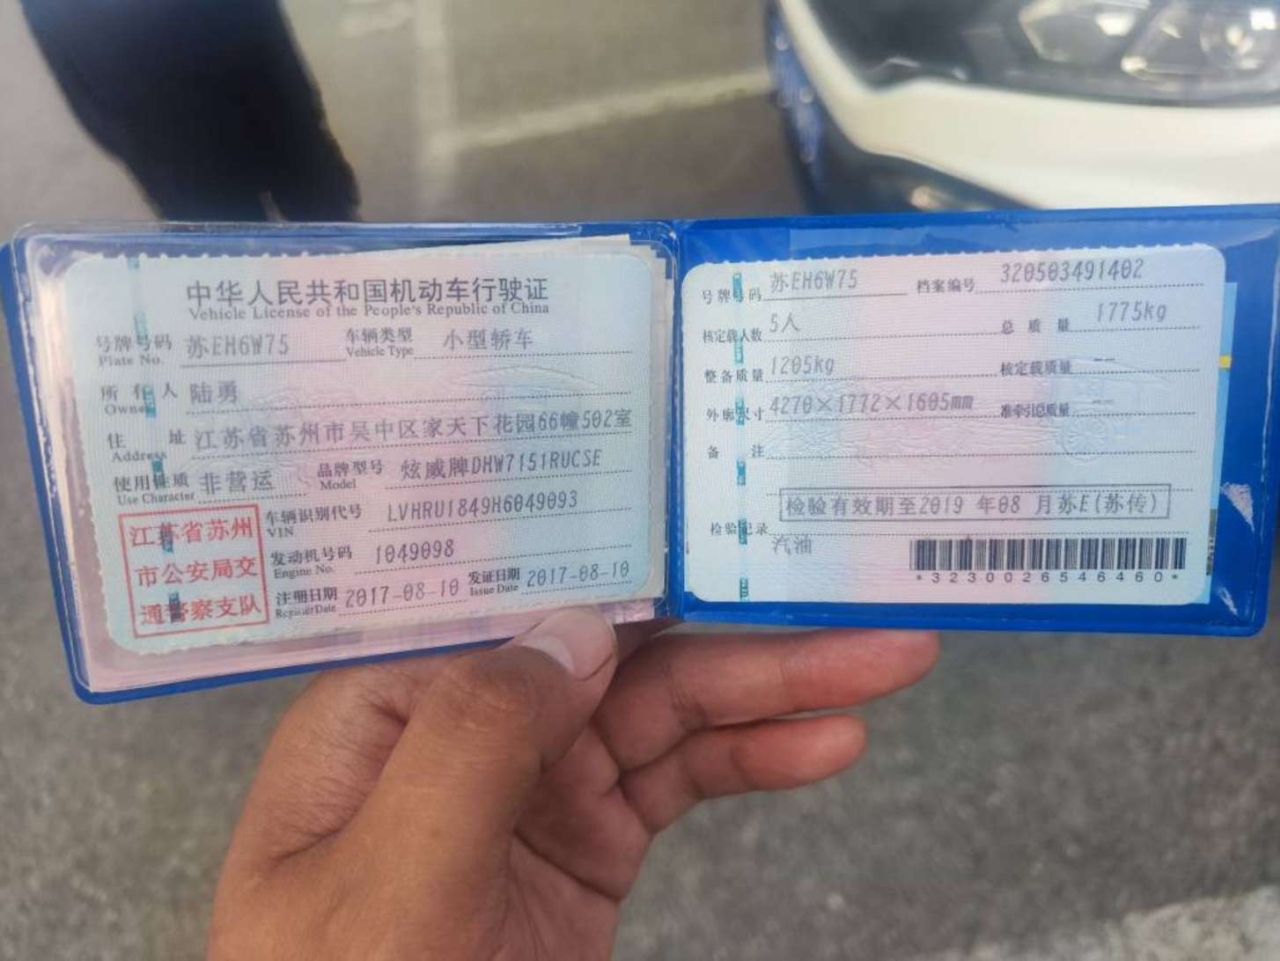 中华人民共和国机动车行驶证
Vehicle License of the People's Republic of China
号牌号码 苏EH6W75 车辆类型 小型轿车
Plate No. Vehicle Type
所有人 陆勇
Owner
住址 江苏省苏州市吴中区家天下花园66幢502室
Address
使用性质 非营运 品牌型号 炫威牌DHW7151RUCSE
Use Character Model
车辆识别代号 LVHRU1849H6049093
VIN
发动机号码 1049098
Engine No.
注册日期 2017-08-10 发证日期 2017-08-10
Register Date Issue Date
江苏省苏州
市公安局交
通警察支队
号牌号码 苏EH6W75 档案编号 320503491402
核定载人数 5人 总质量 1775kg
整备质量 1205kg 核定载质量 --
外廓尺寸 4270×1772×1605mm 准牵引总质量 --
备注
检验有效期至2019 年08 月苏E(苏传)
检验记录
汽油
*3230026546460*